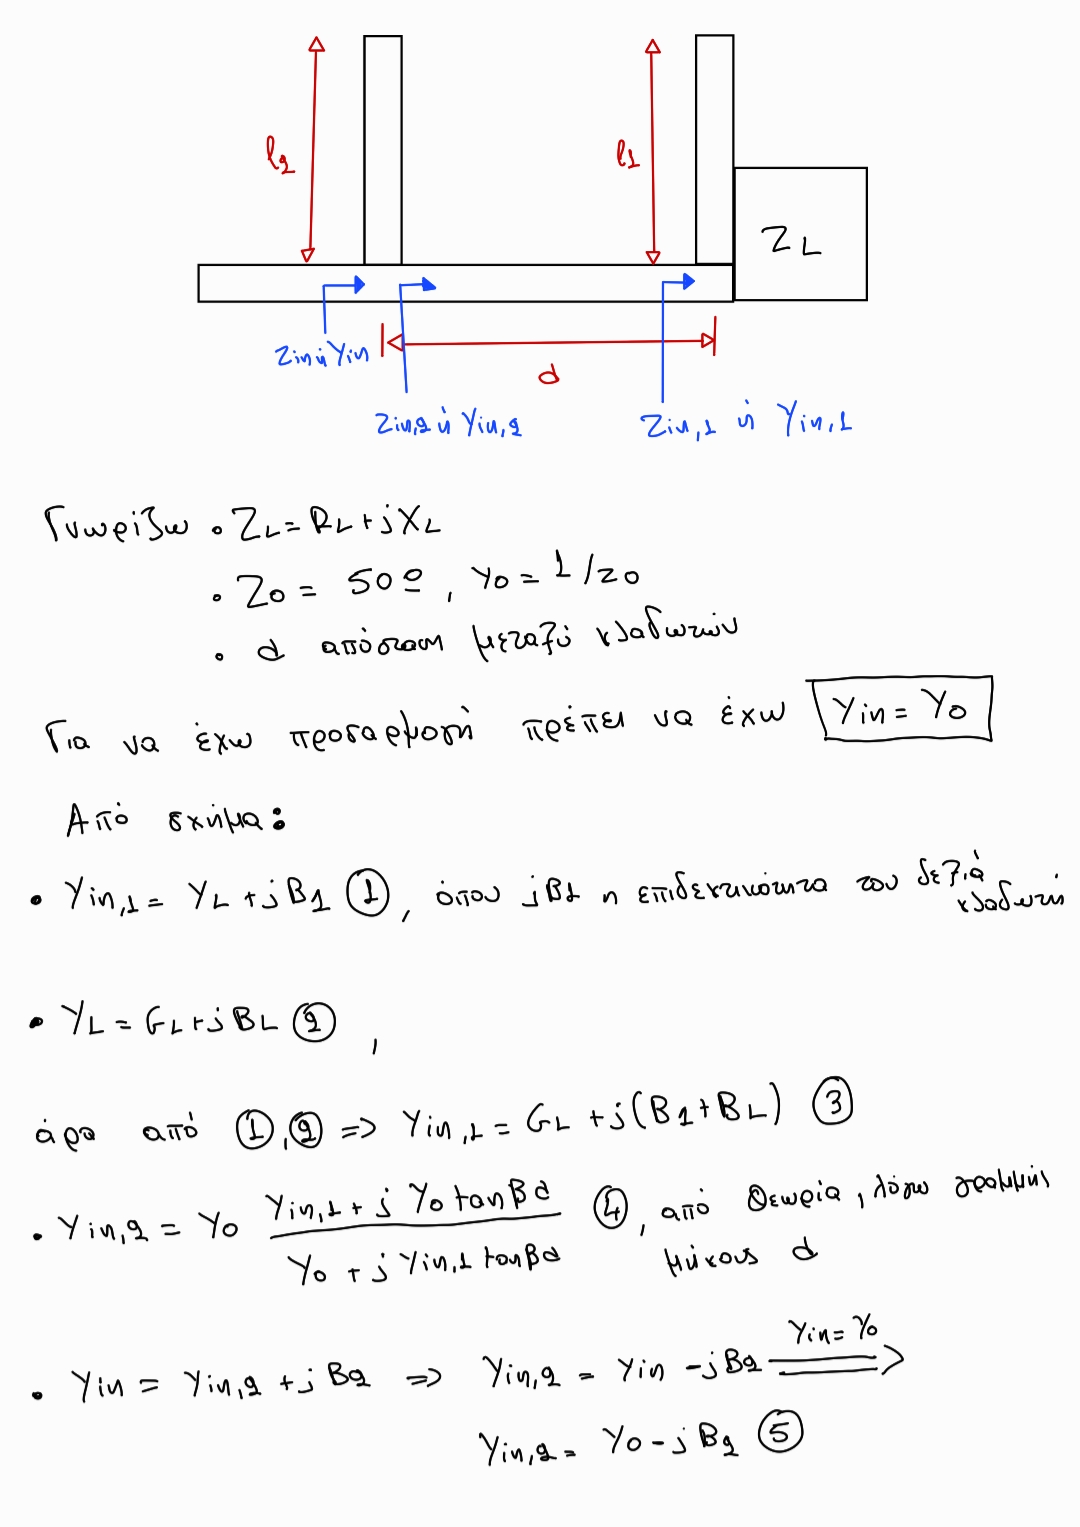 l2
l1
ZL
Zin ή Yin
d
Zin,2 ή Yin,2
Zin,1 ή Yin,1
Γνωρίζω • ZL = RL + jXL
• Z0 = 50Ω, Y0 = 1/Z0
• d απόσταση μεταξύ κλαδωτών
Για να έχω προσαρμογή πρέπει να έχω Yin = Y0
Από σχήμα:
• Yin,1 = YL + jB1 ①, όπου jB1 η επιδεκτικότητα του δεξιά
κλαδωτή
• YL = GL + jBL ②,
άρα από ①,② => Yin,1 = GL + j(B1 + BL) ③
• Yin,2 = Y0 (Yin,1 + j Y0 tanβd) / (Y0 + j Yin,1 tanβd) ④, από θεωρία, λόγω γραμμής
μήκους d
• Yin = Yin,2 + jB2 => Yin,2 = Yin - jB2 Yin = Y0 =>
Yin,2 = Y0 - jB2 ⑤